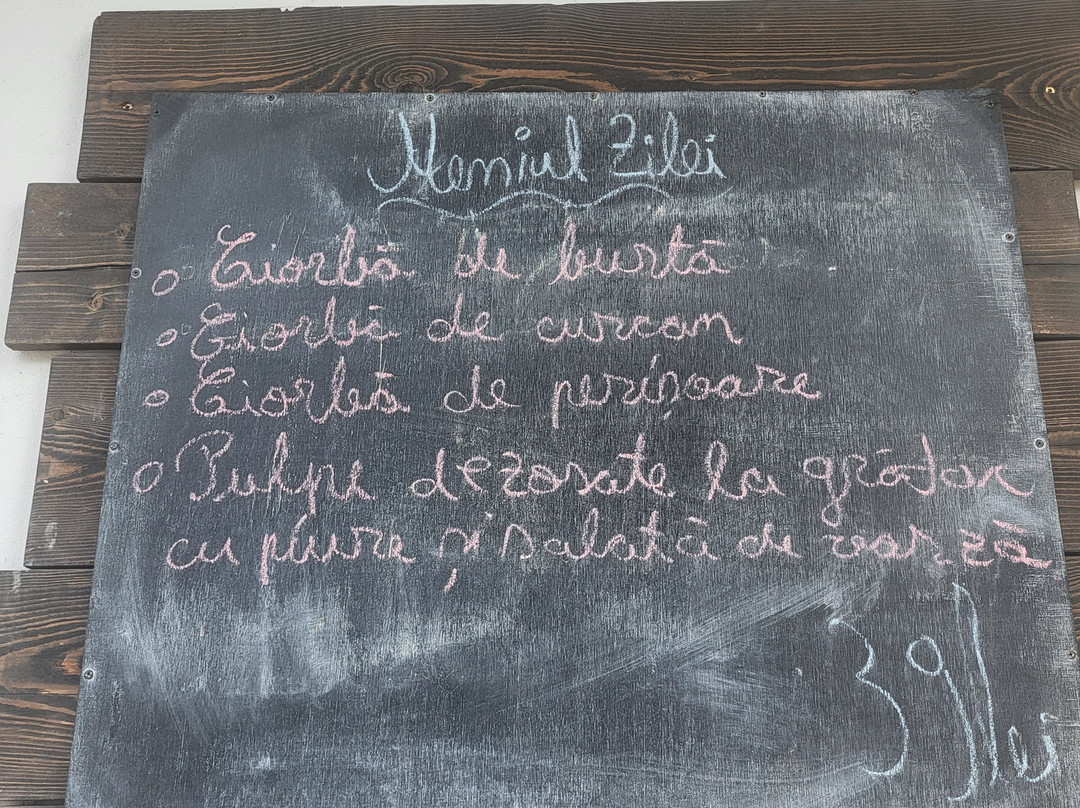 Meniul Zilei
Ciorbă de burtă
Ciorbă de curcan
Ciorbă de perișoare
Pulpe dezosate la grătar
cu piure și salată de varză
39 lei